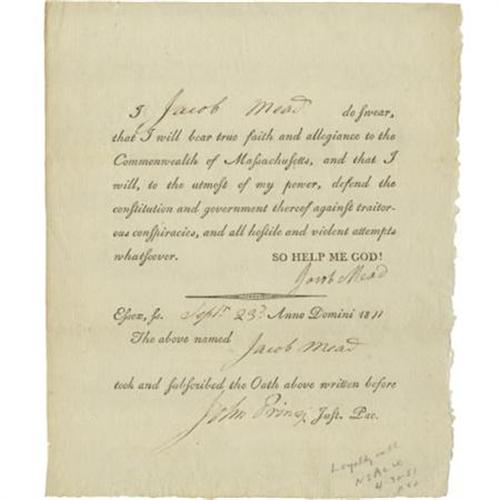 I, Jacob Mead do ſwear,
that I will bear true faith and allegiance to the
Commonwealth of Maſſachuſetts, and that I
will, to the utmoſt of my power, defend the
conſtitution and government thereof againſt traitor-
ous conſpiracies, and all hoſtile and violent attempts
whatſoever. SO HELP ME GOD!
Jacob Mead
Eſſex, ſs. Septr. 23d. Anno Domini 1811
The above named Jacob Mead
took and ſubſcribed the Oath above written before
John Prince Juſt. Pac.
Loyalty oath
4-30-51